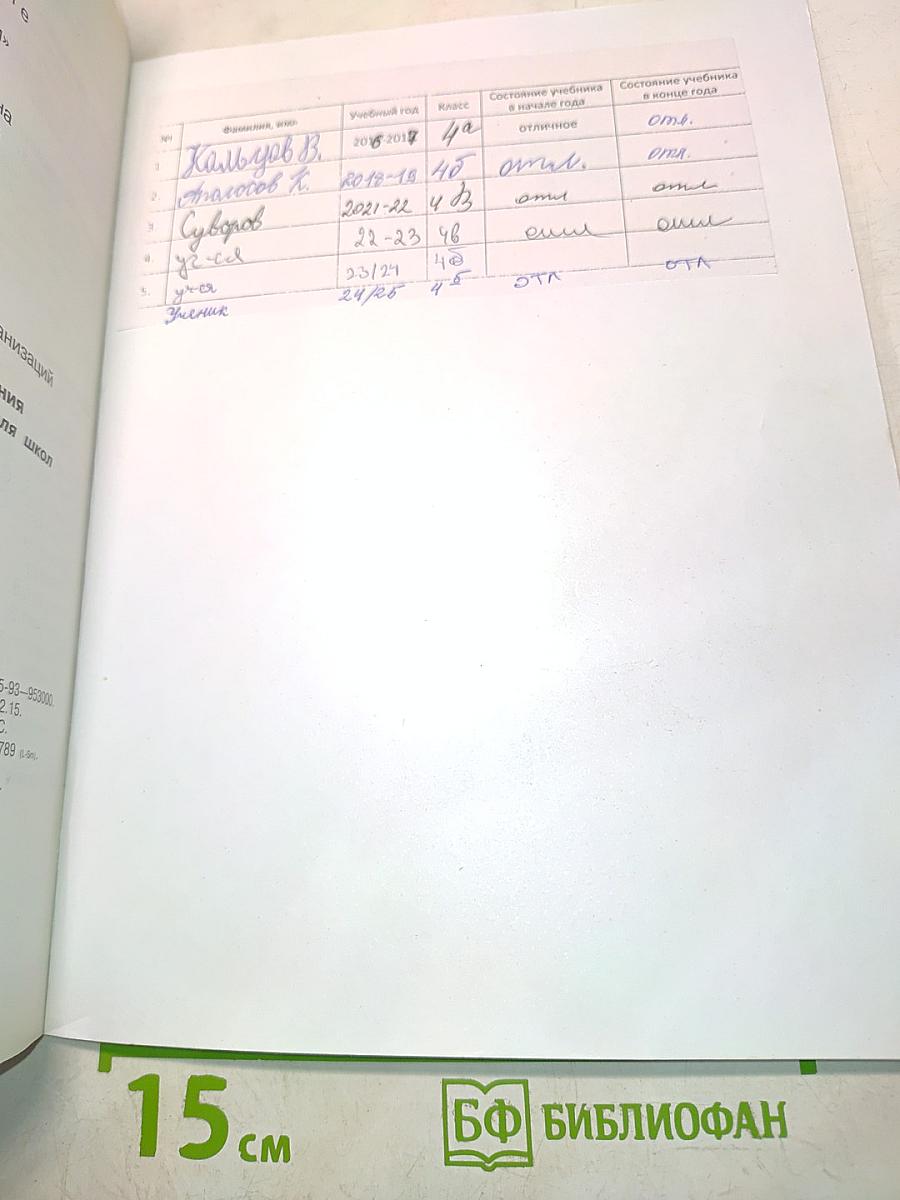 те
»
на
анизаций
ния
ля школ
5-93—953000.
2.15.
С.
789 (L-Sm).
№ Фамилия, имя Учебный год Класс Состояние учебника в начале года Состояние учебника в конце года
1 Кольцов В. 2016-2017 4а отличное отл.
2. К. 2018-19 4б отл. отл.
3 Суворов 2021-22 4 В отл отл
4. уч-ся 22-23 4в отл отл
5. уч-ся 23/24 4б
Ученик 24/25 4 б отл отл
15 см
БФ БИБЛИОФАН